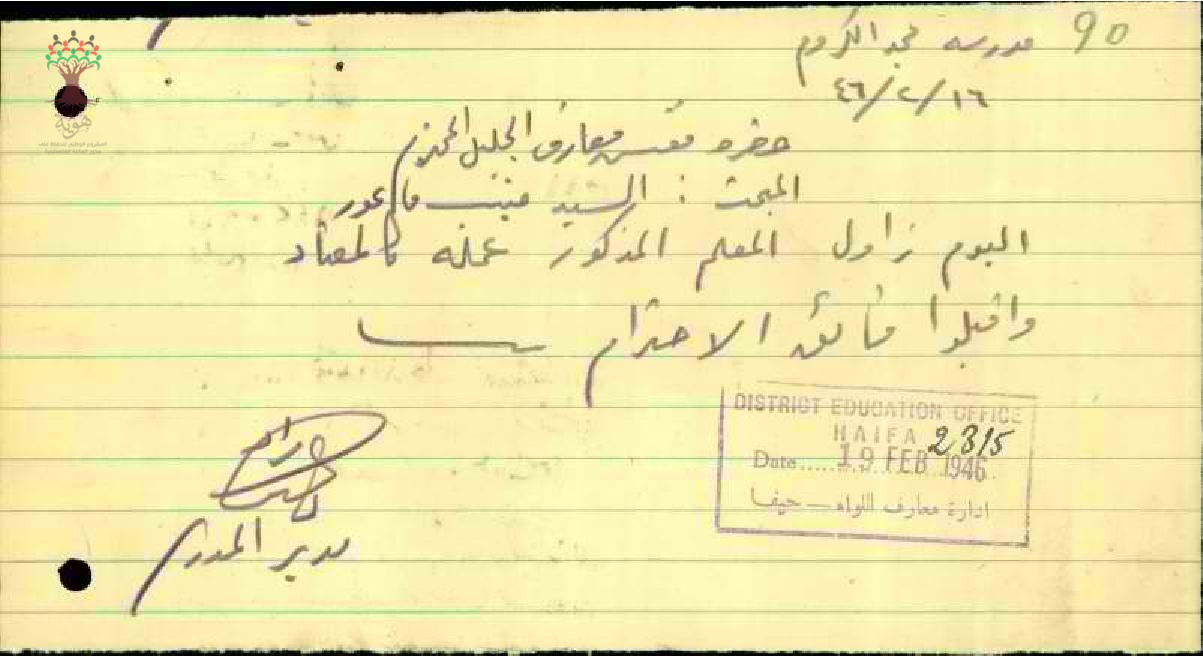 90
مدرسه مجد الكروم
١٦/٢/٤٦
حضره مفتش معارف الجليل المحترم
المبحث : السيد منيب
اليوم زاول المعلم المذكور عمله كالمعتاد
واقبلوا فائق الاحترام
DISTRICT EDUCATION OFFICE
HAIFA 2315
Date..... 19 FEB 1946
ادارة معارف اللواء — حيفا
مدير المدرسة